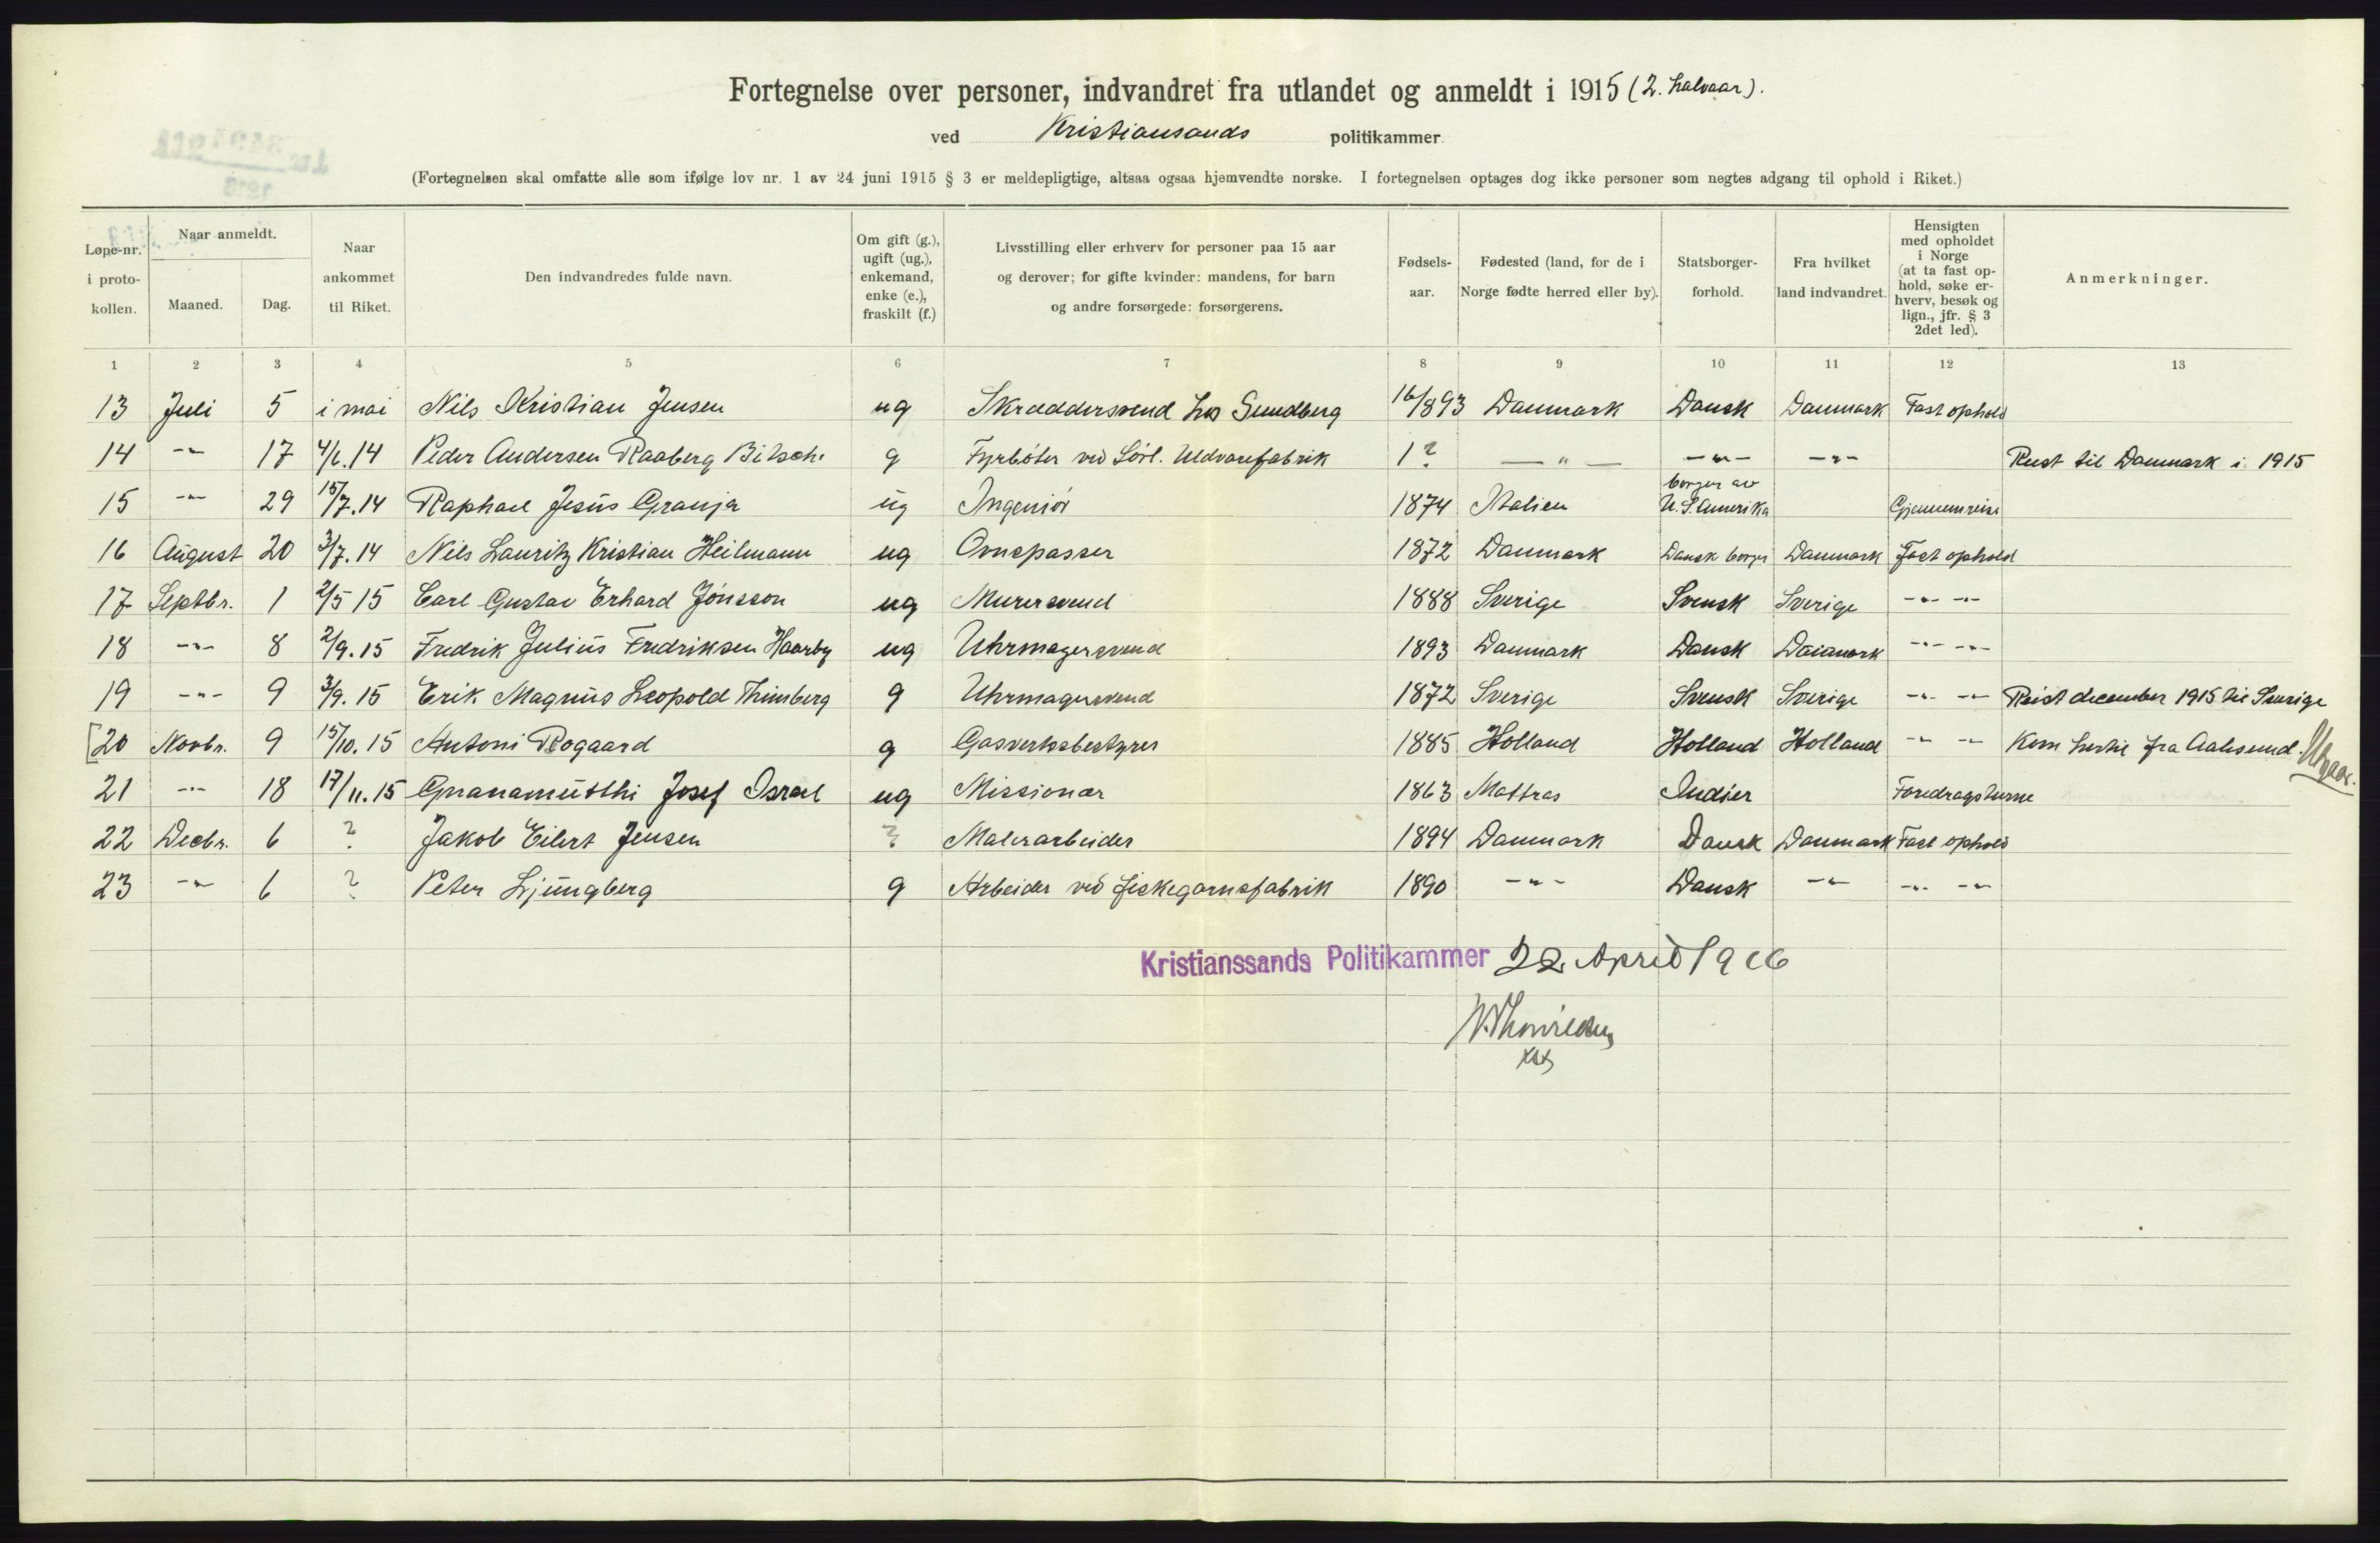 Fortegnelse over personer, indvandret fra utlandet og anmeldt i 1915 (2. halvaar).
ved Kristiansands politikammer
(Fortegnelsen skal omfatte alle som ifølge lov nr. 1 av 24 juni 1915 § 3 er meldepligtige, altsaa ogsaa hjemvendte norske. I fortegnelsen optages dog ikke personer som negtes adgang til ophold i Riket.)
Løpe-nr. i proto- kollen. Naar anmeldt. Maaned. Dag. Naar ankommet til Riket. Den indvandredes fulde navn. Om gift (g.), ugift (ug.), enkemand, enke (e.), fraskilt (f.) Livsstilling eller erhverv for personer paa 15 aar og derover; for gifte kvinder: mandens, for barn og andre forsørgede: forsørgerens. Fødsels- aar. Fødested (land, for de i Norge fødte herred eller by). Statsborger- forhold. Fra hvilket land indvandret. Hensigten med opholdet i Norge (at ta fast op- hold, søke er- hverv, besøk og lign., jfr. § 3 2det led). Anmerkninger.
1 2 3 4 5 6 7 8 9 10 11 12 13
13 Juli 5 i mai Nils Kristian Jensen ug Skræddersvend hos Sundberg 16/893 Danmark Dansk Danmark Fast ophold
14 -"- 17 4/6.14 Peder Andersen Raaberg Bitsch. g Fyrbøter ved Sörl. Uldvarefabrik 1? -"- -"- -"- Reist til Danmark i 1915
15 -"- 29 15/7.14 Raphael Jesus Granja ug Ingeniör 1874 Italien borger av U.S. Amerika Gjennemreise
16 August 20 3/7.14 Nils Lauritz Kristian Heilmann ug Ovnspasser 1872 Danmark Dansk borger Danmark Fast ophold
17 Septbr. 1 2/5 15 Carl Gustav Erhard Jönsson ug Murersvend 1888 Sverige Svensk Sverige -"- -"-
18 -"- 8 2/9.15 Fredrik Julius Fredriksen Haarby ug Uhrmagersvend 1893 Danmark Dansk Danmark -"- -"-
19 -"- 9 3/9.15 Erik Magnus Leopold Thimberg g Uhrmagersvend 1872 Sverige Svensk Sverige -"- -"- Reist december 1915 til Sverige
[20 Novbr. 9 15/10.15 Antoni Rogaard g Gasverksbestyrer 1885 Holland Holland Holland -"- -"- Kom hertil fra Aalesund. Utgaar.
21 -"- 18 17/11.15 Gnanamutthi Josef Israel ug Missionær 1863 Mattras Indier Foredragsturne
22 Decbr. 6 ? Jakob Eilert Jensen ? Malerarbeider 1894 Danmark Dansk Danmark Fast ophold
23 -"- 6 ? Peter Ljungberg g Arbeider ved fiskegarnsfabrik 1890 -"- Dansk -"- -"- -"-
Kristianssands Politikammer 22 April 1916